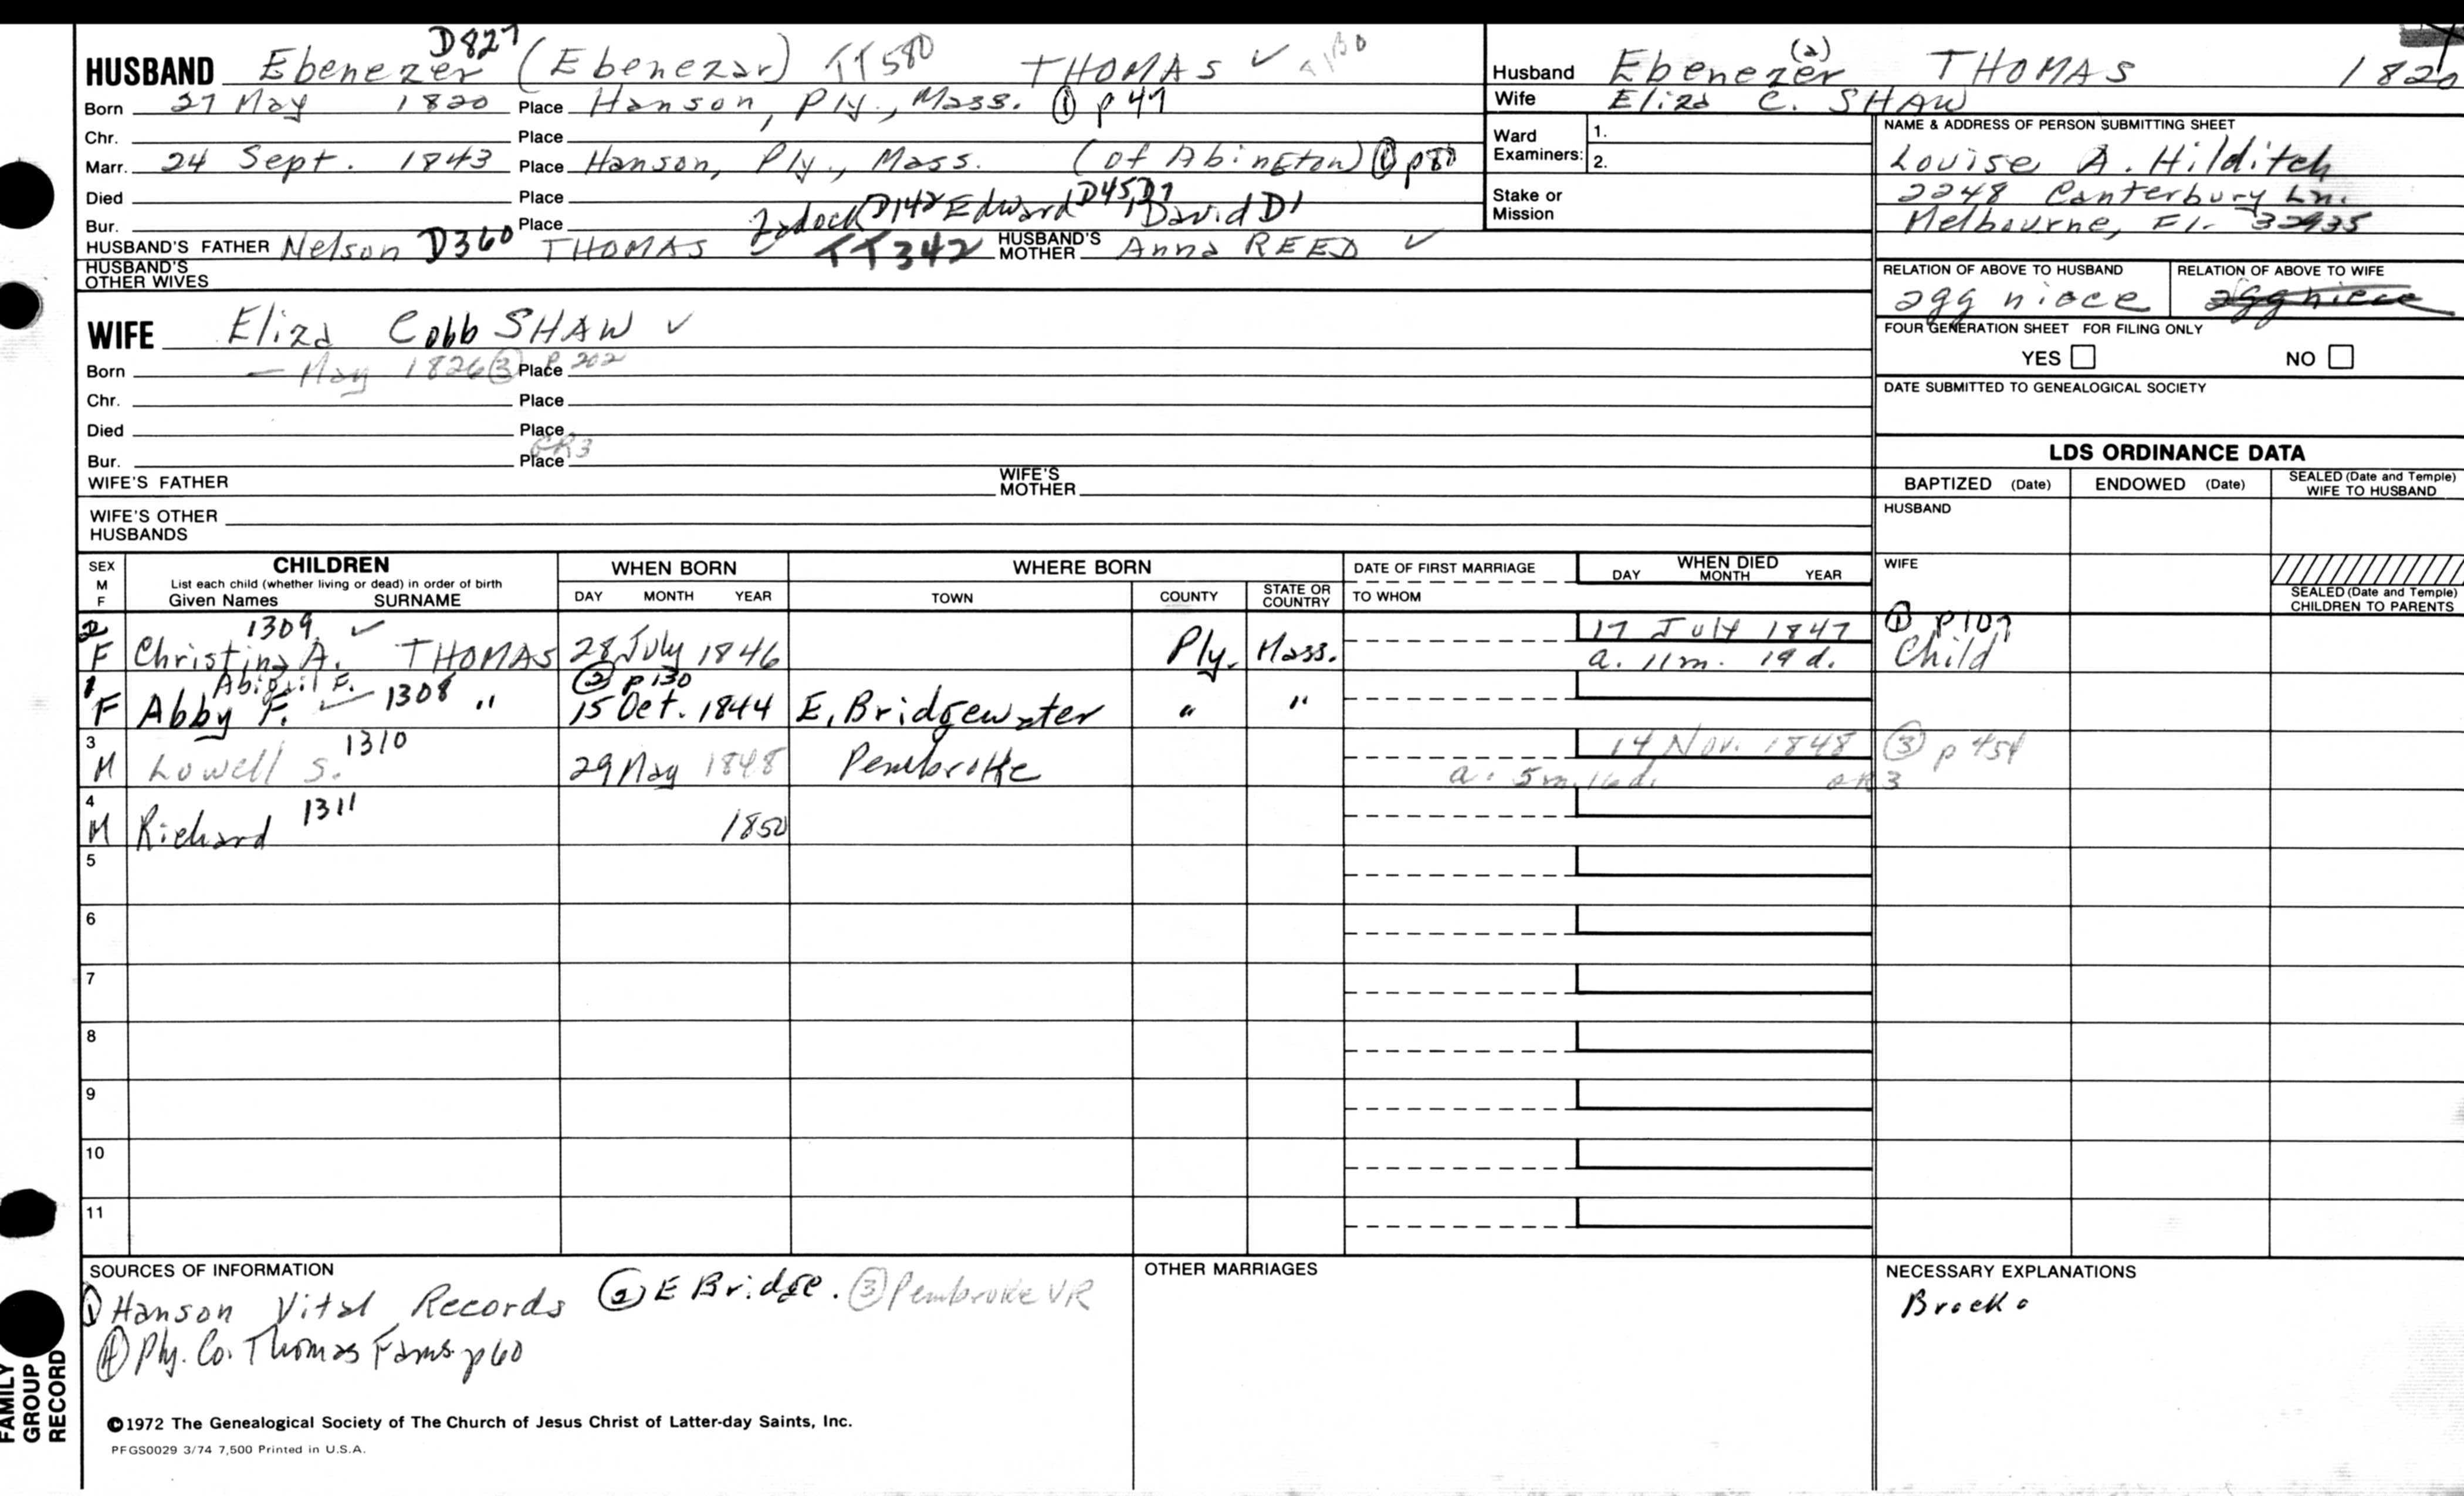 D827
HUSBAND Ebenezer (Ebenezar) TT580 THOMAS ✓
Born 27 May 1820 Place Hanson, Ply., Mass. ① p 47
Chr. Place
Marr. 24 Sept. 1843 Place Hanson, Ply., Mass. (of Abington) ① p80
Died Place
Bur. Place Zadock D142 Edward D45, D7 David D1
HUSBAND'S FATHER Nelson D360 THOMAS ✓ TT342 HUSBAND'S MOTHER Anna REED ✓
HUSBAND'S OTHER WIVES
WIFE Eliza Cobb SHAW ✓
Born — May 1826 ③ p 202 Place
Chr. Place
Died Place
GR3
Bur. Place
WIFE'S FATHER WIFE'S MOTHER
WIFE'S OTHER HUSBANDS
Husband Ebenezer (2) THOMAS 1820
Wife Eliza C. SHAW
Ward Examiners: 1.
2.
Stake or Mission
NAME & ADDRESS OF PERSON SUBMITTING SHEET
Louise A. Hilditch
2248 Canterbury Ln.
Melbourne, Fl. 32935
RELATION OF ABOVE TO HUSBAND RELATION OF ABOVE TO WIFE
2gg niece 2gg niece
FOUR GENERATION SHEET FOR FILING ONLY
YES NO
DATE SUBMITTED TO GENEALOGICAL SOCIETY
LDS ORDINANCE DATA
BAPTIZED (Date) ENDOWED (Date) SEALED (Date and Temple) WIFE TO HUSBAND
HUSBAND
WIFE
SEALED (Date and Temple) CHILDREN TO PARENTS
SEX M F CHILDREN WHEN BORN WHERE BORN DATE OF FIRST MARRIAGE WHEN DIED
List each child (whether living or dead) in order of birth
Given Names SURNAME DAY MONTH YEAR TOWN COUNTY STATE OR COUNTRY TO WHOM DAY MONTH YEAR
2 1309 ✓ 17 July 1847 ① p107
F Christina A. THOMAS 28 July 1846 Ply. Mass. a. 11m. 19 d. Child
1 Abigail F. ② p130
F Abby F. ✓ 1308 " 15 Oct. 1844 E. Bridgewater " "
3 1310 14 Nov. 1848 ③ p 454
M Lowell S. 29 May 1848 Pembroke a. 5m. 16d. GR3
4 1311
M Richard 1850
5
6
7
8
9
10
11
SOURCES OF INFORMATION
① Hanson Vital Records ② E Bridge. ③ Pembroke VR
④ Ply. Co. Thomas Fams. p60
OTHER MARRIAGES
NECESSARY EXPLANATIONS
©1972 The Genealogical Society of The Church of Jesus Christ of Latter-day Saints, Inc.
PFGS0029 3/74 7,500 Printed in U.S.A.
FAMILY
GROUP
RECORD